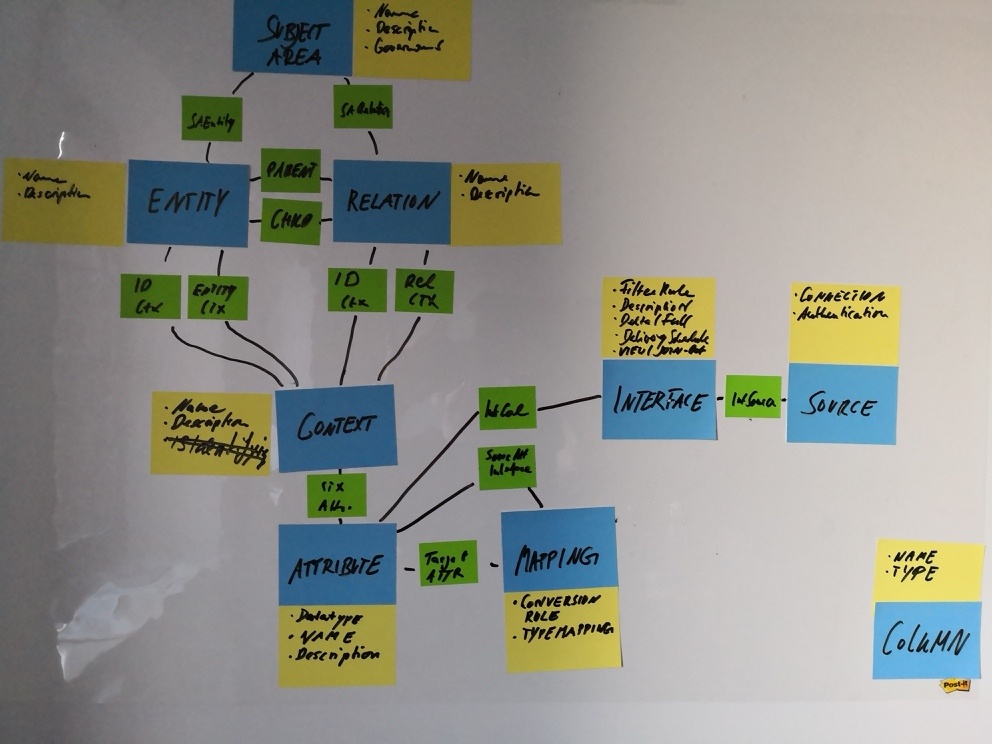 SUBJECT
AREA
· Name
· Description
· Governance
SAEntity
SARelation
· Name
· Description
ENTITY
PARENT
CHILD
RELATION
· Name
· Description
ID
Ctx
ENTITY
CTX
ID
Ctx
Rel
CTX
· Filter Rule
· Description
· Delta/Full
· Delivery Schedule
· VIEW/JOIN-
· CONNECTION
· Authentication
INTERFACE
SOURCE
· Name
· Description
CONTEXT
Attr.
ATTRIBUTE
Target
ATTR
MAPPING
· Datatype
· NAME
· Description
· CONVERSION
RULE
· TYPEMAPPING
· NAME
· TYPE
COLUMN
Post-it